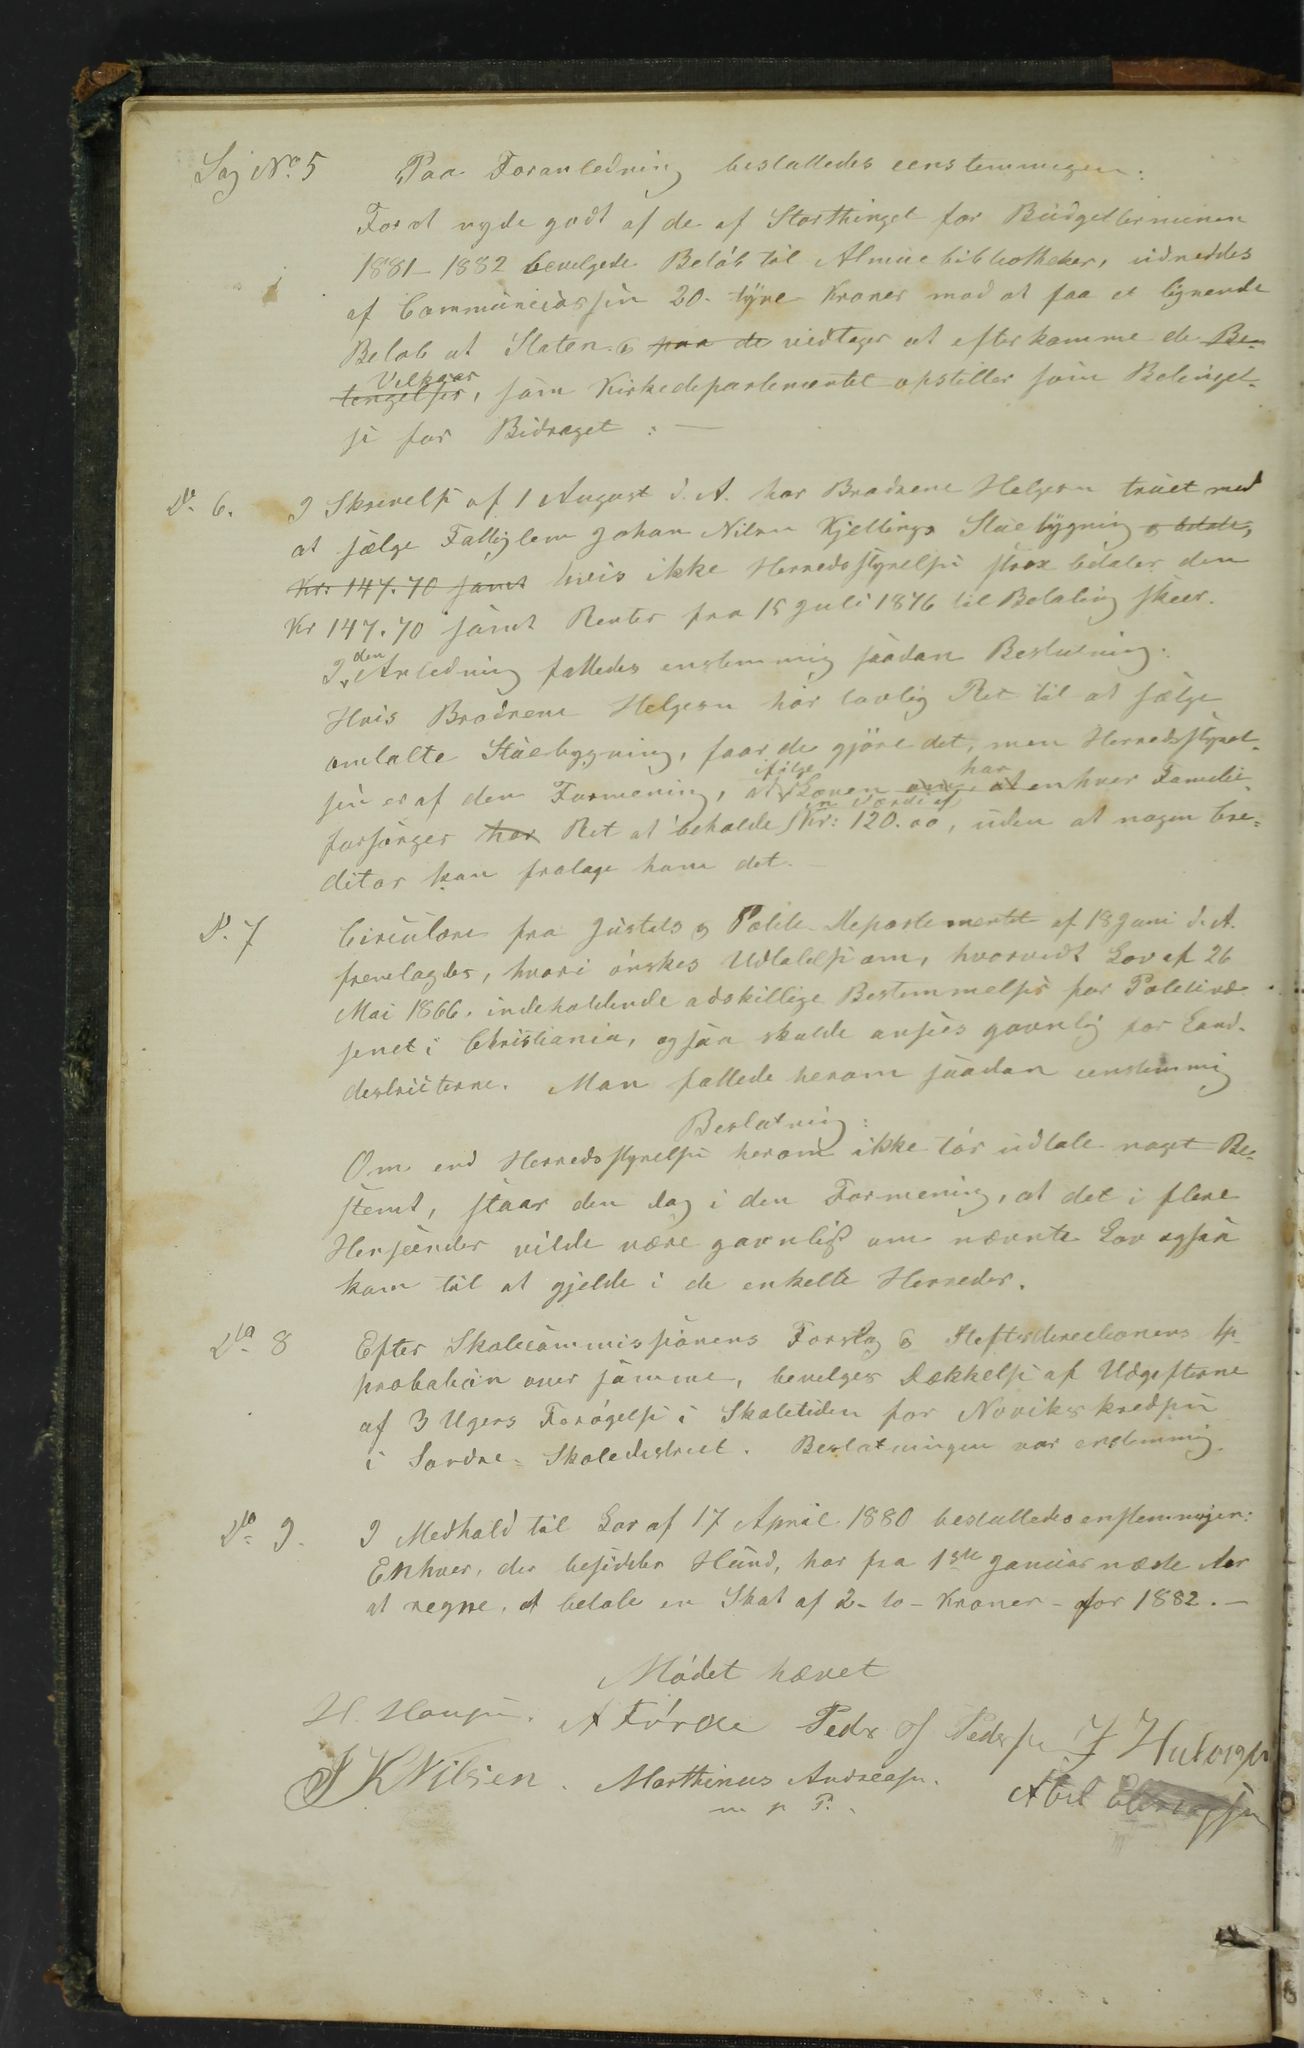 Sag No. 5 Paa Foranledning besluttedes eenstemmigen:
For at nyde godt af de af Storthinget for Budgetterminen
1881–1882 bevilgede Beløb til Almuebibliotheker, udreddes
af Communecassen 20. tyve Kroner mod at faa et lignende
Beløb af Staten. & paa de vedtages at efterkomme de Be-
tingelser, Vilkaar som Kirkedepartementet opstiller som Betingel-
se for Bidraget : —
Do. 6. I Skrivelse af 1 August d. A. har Brødrene Helgesen truet med
at sælge Fattiglem Johan Nilsen Kjellings Stuebygning & betale,
Kr. 147.70 samt hvis ikke Herredsstyrelsen strax betaler den
Kr 147.70 samt Renter fra 15 Juli 1876 til Betaling skeer.
I den Anledning fattedes enstemmig saadan Beslutning:
Hvis Brødrene Helgesen har lovlig Ret til at sælge
omtalte Stuebygning, faar de gjøre det, men Herredsstyrel-
sen er af den Formening, at ifølge Loven har enhver Familie-
forsørger har Ret at beholde en Værdi af Kr: 120.00, uden at nogen Cre-
ditor kan fratage ham det. —
D. 7 Circulære fra Justits & Politi-Departementet af 18 Juni d. A.
fremlagdes, hvori ønskes Udtalelse om, hvorvidt Lov af 26
Mai 1866. indeholdende adskillige Bestemmelser for Politivæ-
senet i Christiania, ogsaa skulde ansees gavnlig for Land-
destricterne. Man fattede herom saadan eenstemmig
Beslutning:
Om end Herredsstyrelsen herom ikke tør udtale noget Be-
stemt, staar den dog i den Formening, at det i flere
Henseender vilde være gavnligt om nævnte Lov ogsaa
kom til at gjelde i de enkelte Herreder.
Dto 8 Efter Skolecommissionens Forslag & Stiftsdirectionens Ap-
probation over samme, bevilges Dækkelse af Udgifterne
af 3 Ugers Forøgelse i Skoletiden for Novikskredsen
i Søndre Skoledistrict. Beslutningen var enstemmig.
Dto 9. I Medhold til Lov af 17 April 1880 besluttedes enstemmigen:
Enhver, der besidder Hund, har fra 1ste Januar næste Aar
at regne, at betale en Skat af 2 - to - Kroner - for 1882. —
Mødet hævet
H. Hansen. A Førde Peder O Pedersen J
J K Nilsen. Marthinus Andreasen. Abel
m p P.